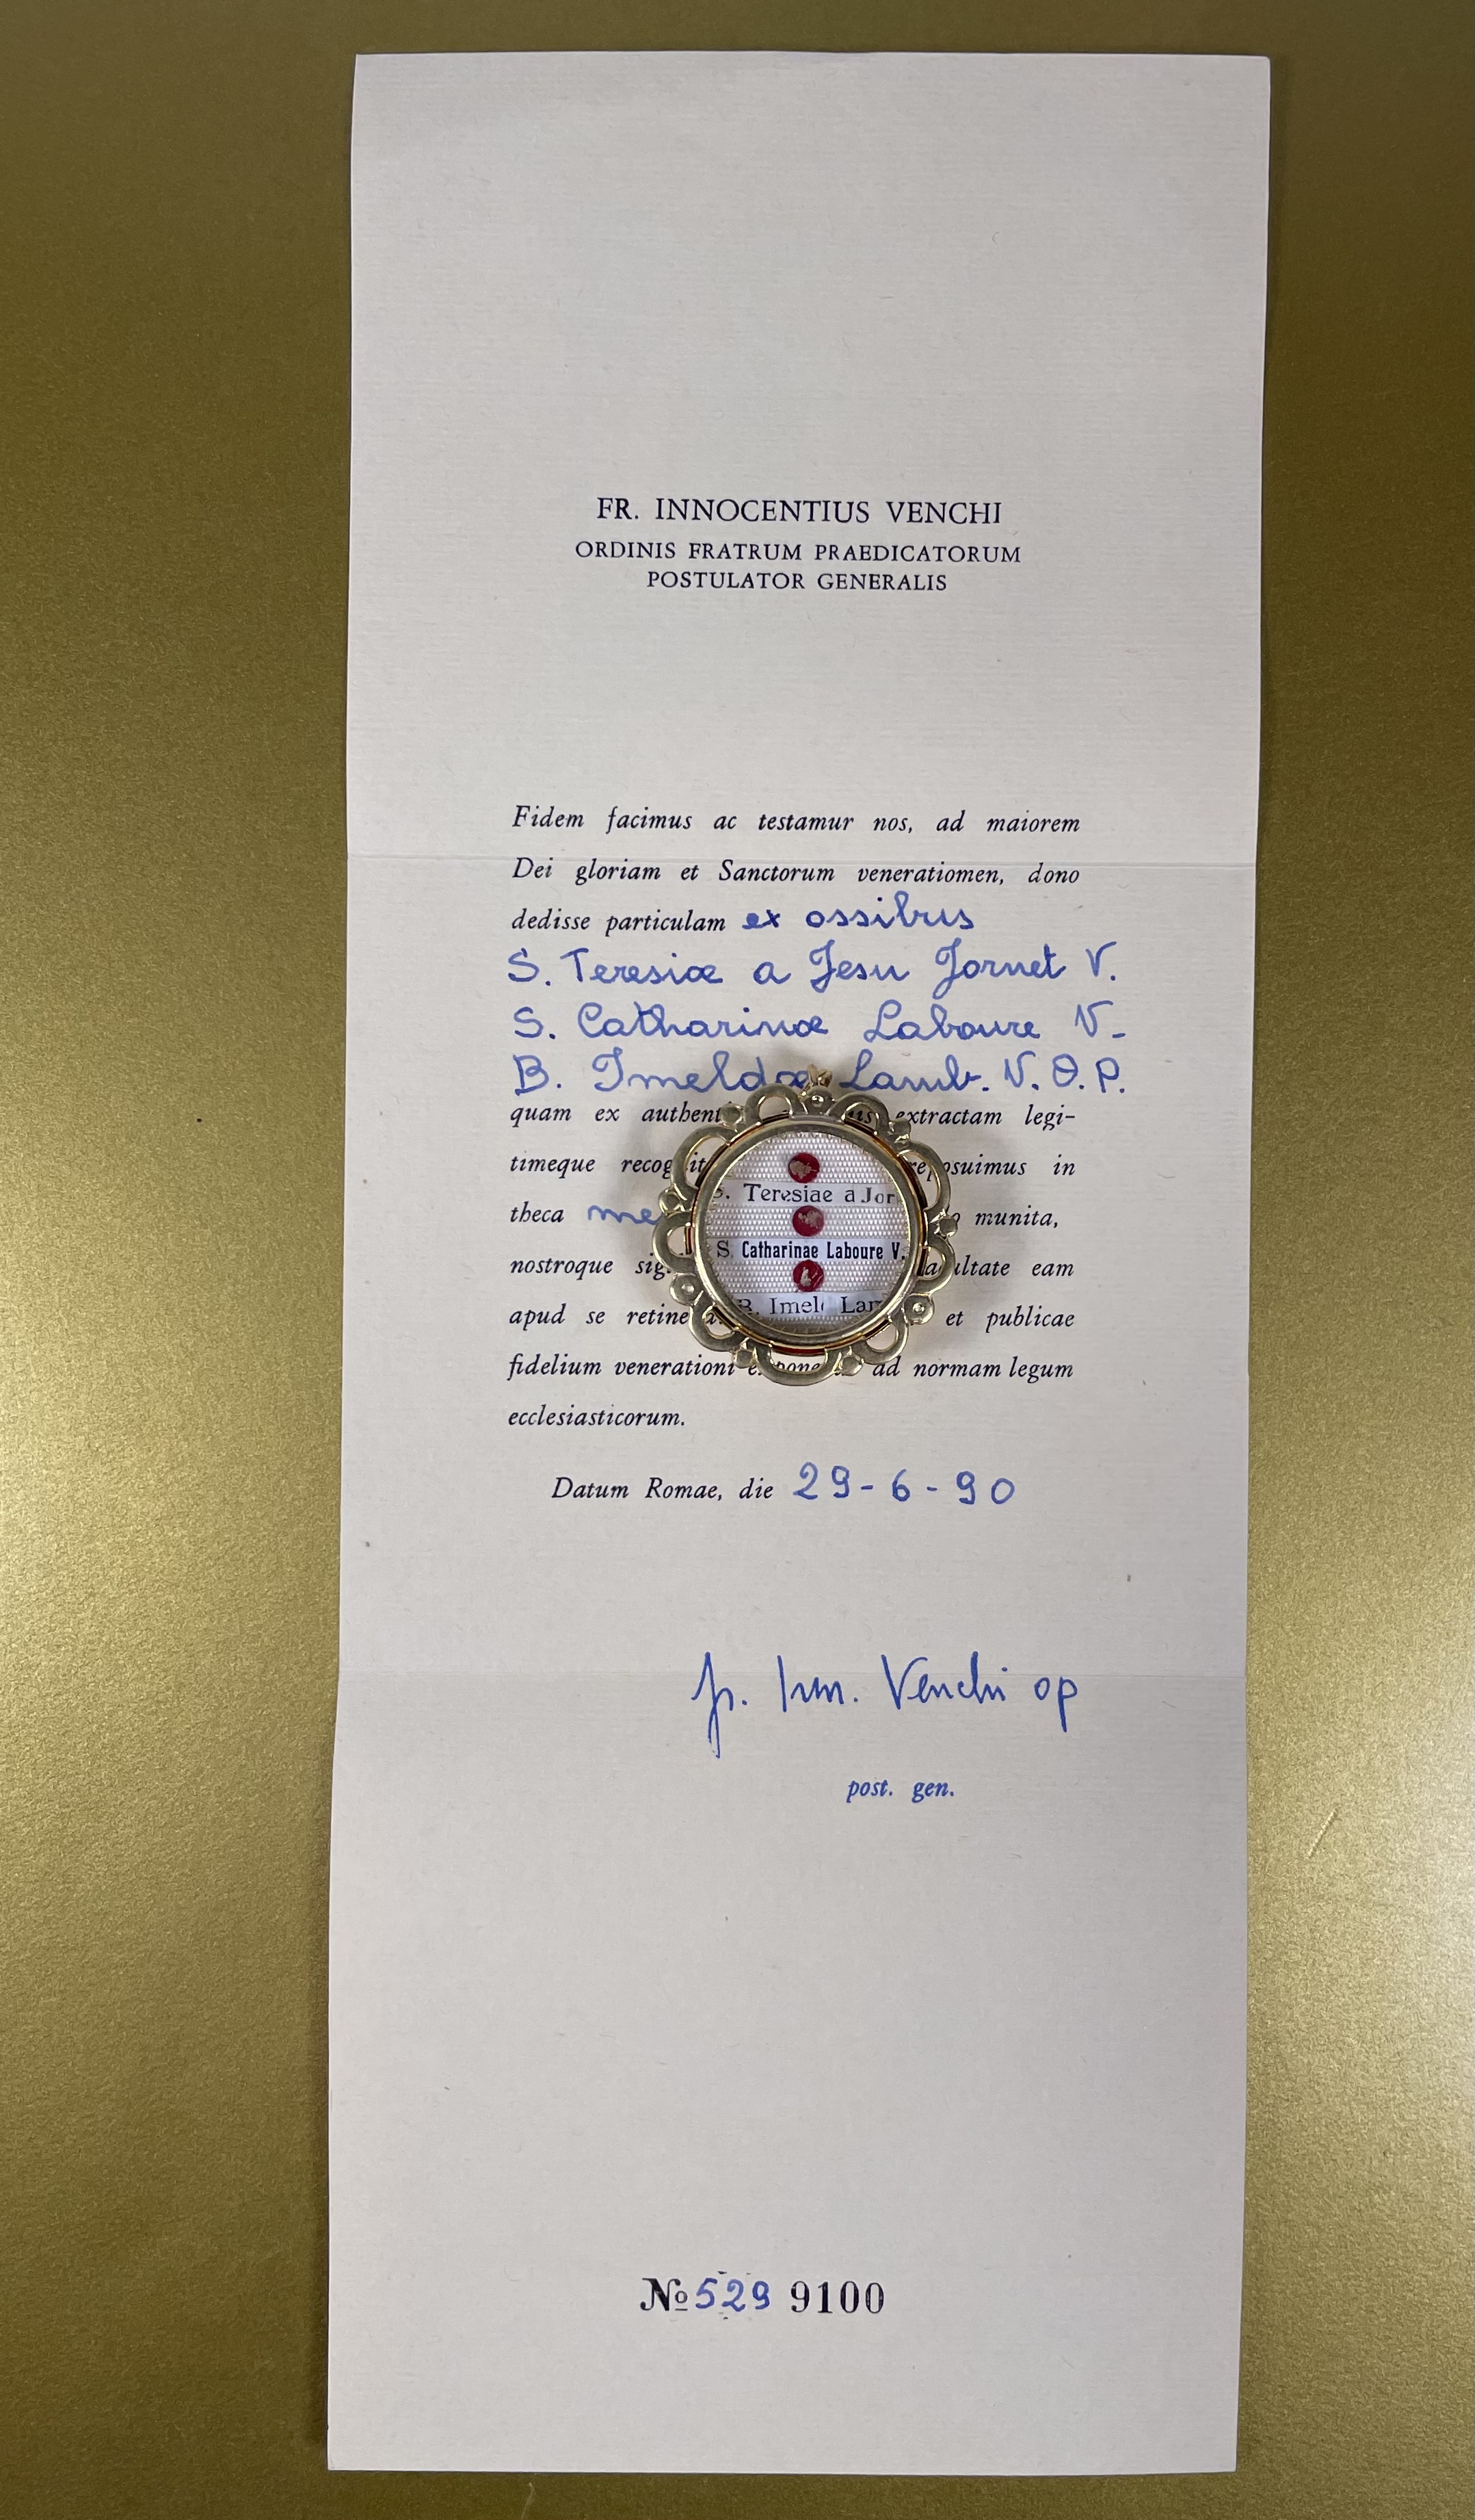 FR. INNOCENTIUS VENCHI
ORDINIS FRATRUM PRAEDICATORUM
POSTULATOR GENERALIS
Fidem facimus ac testamur nos, ad maiorem
Dei gloriam et Sanctorum veneratiomen, dono
dedisse particulam ex ossibus
S. Teresiæ a Jesu Jornet V.
S. Catharinæ Laboure V.
B. Imeldæ Lamb. V. O. P.
quam ex extractam legi-
timeque in
theca munita,
nostroque eam
apud se et publicae
fidelium venerationi ad normam legum
ecclesiasticorum.
S. Teresiae a Jor
S. Catharinae Laboure V.
B. Imel Lam
Datum Romae, die 29-6-90
fr. Inn. Venchi op
post. gen.
№ 529 9100